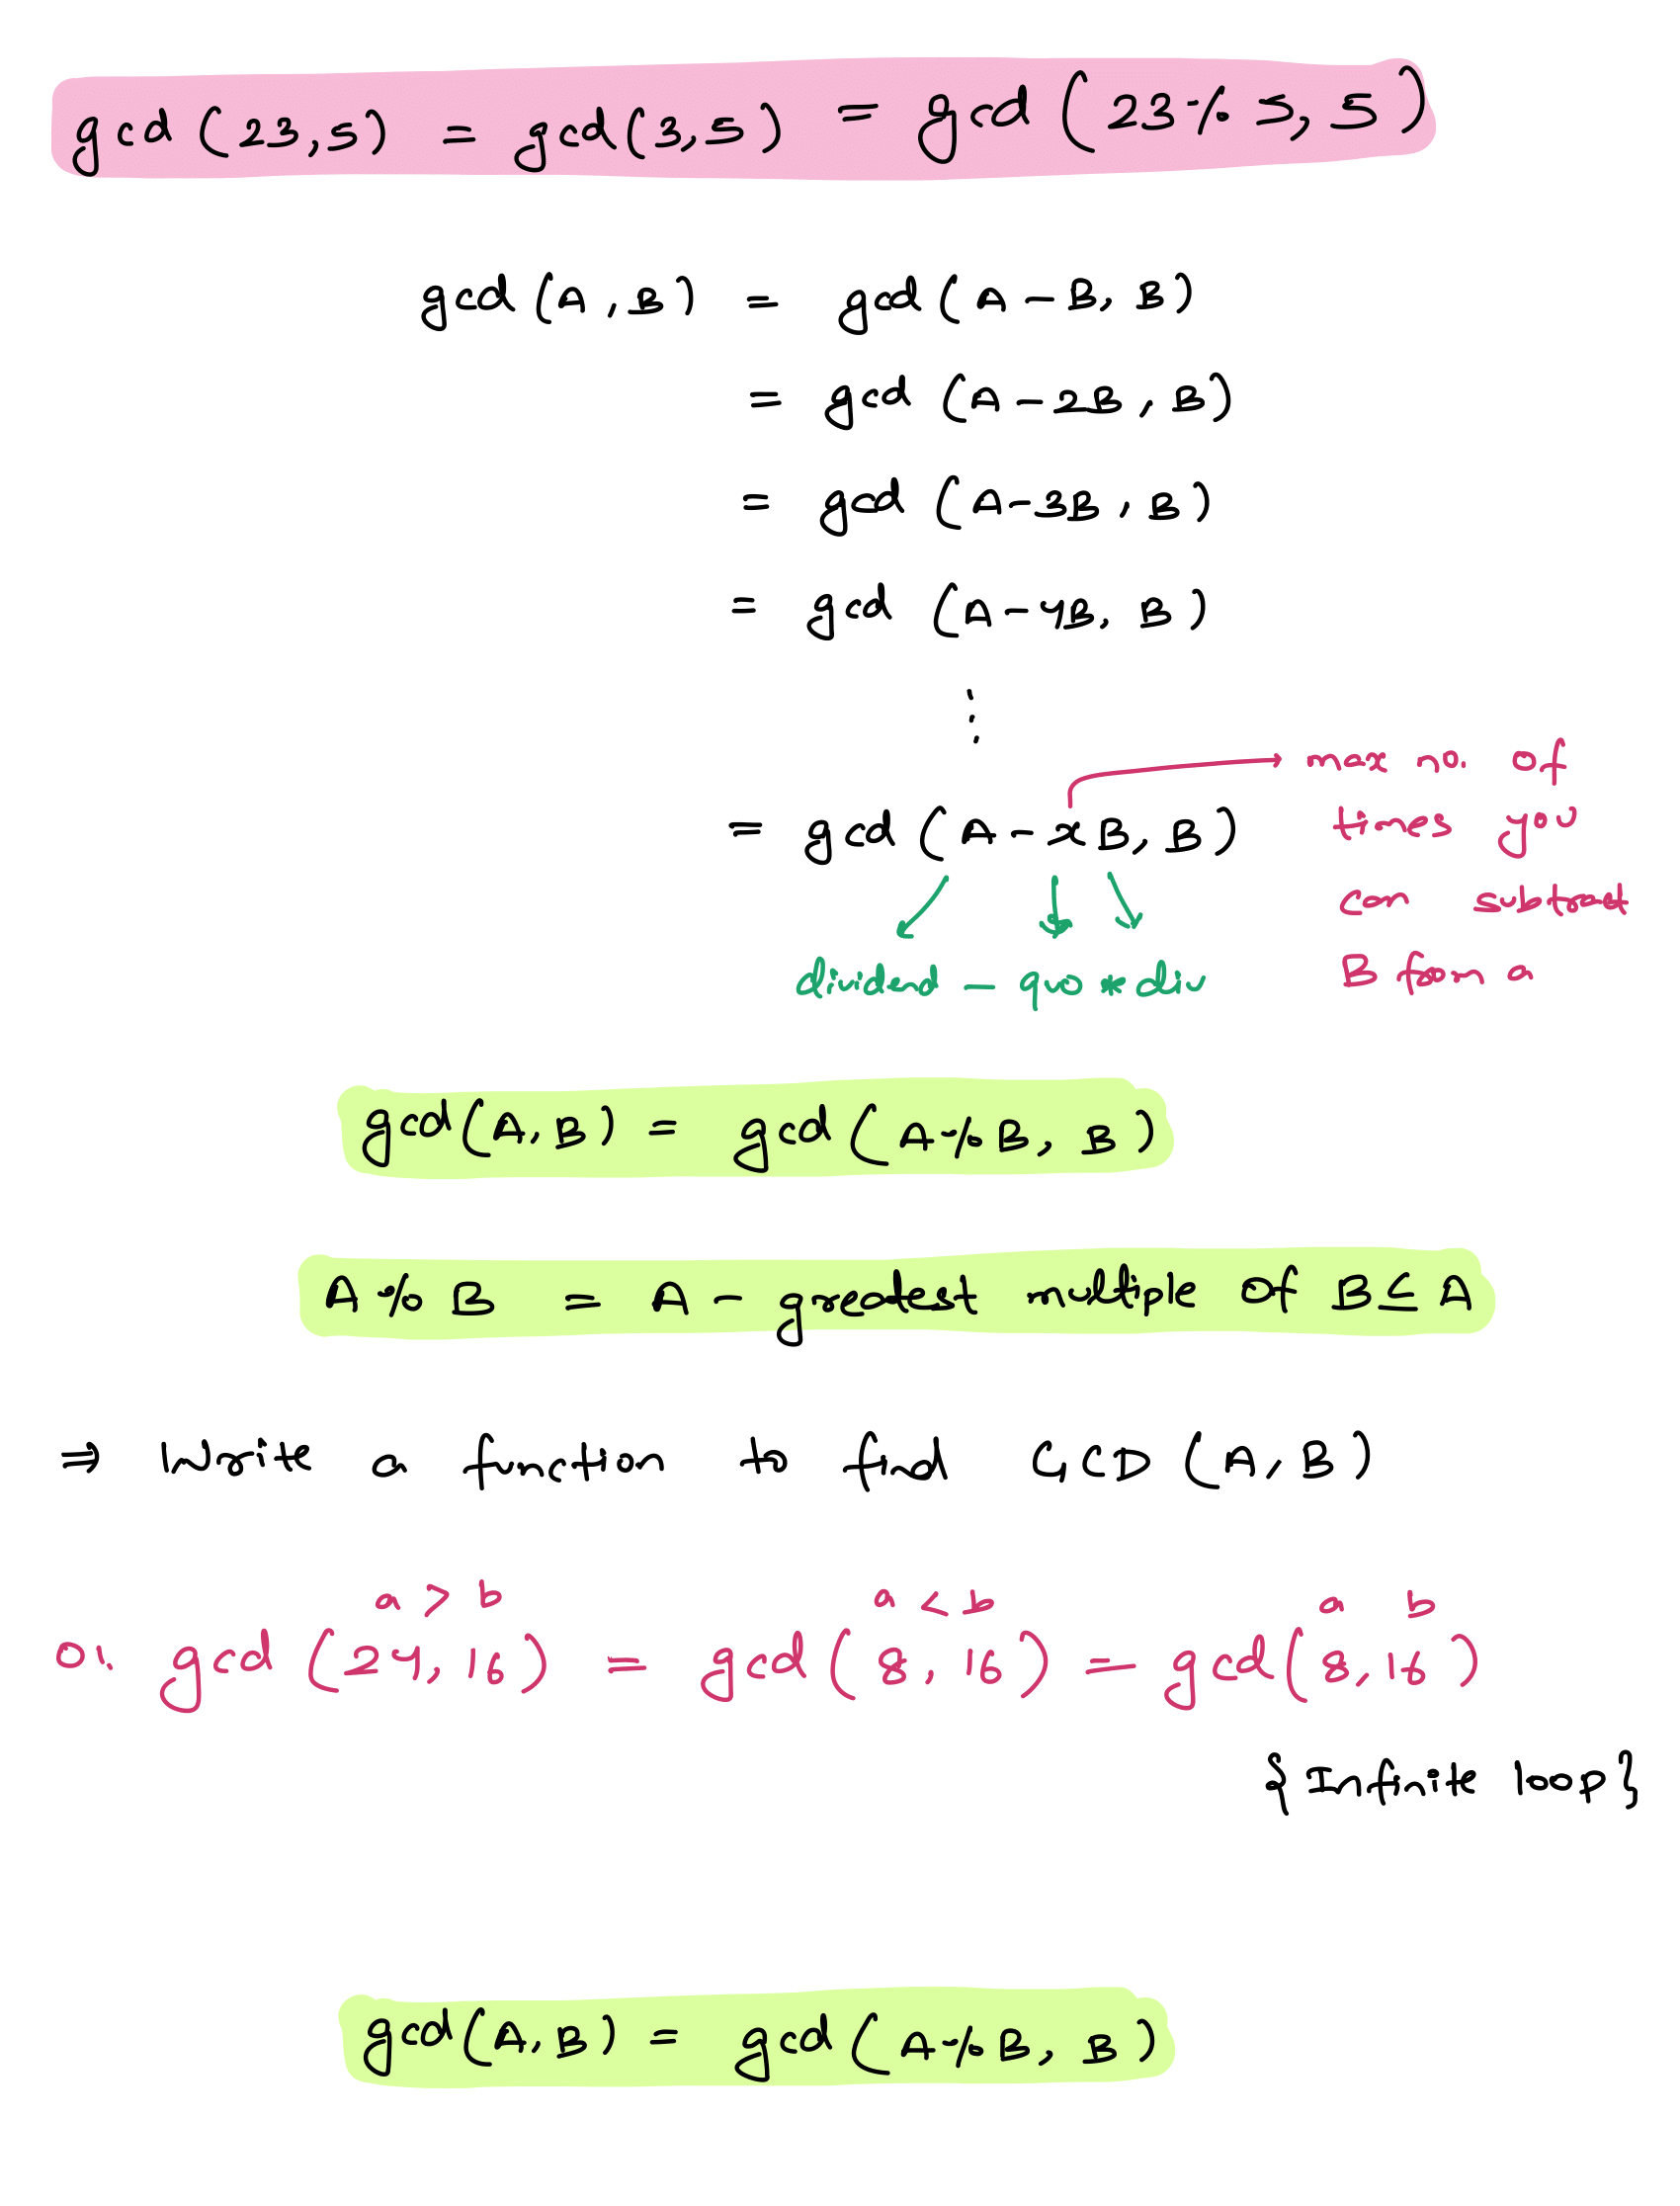 gcd (23,5) = gcd(3,5) = gcd (23 % 5, 5)
gcd (A , B) = gcd (A - B, B)
= gcd (A - 2B , B)
= gcd (A - 3B , B)
= gcd (A - 4B, B)
⋮
= gcd (A - xB, B)
max no. of
times you
can subtract
B from a
dividend - quo * div
gcd(A, B) = gcd (A % B, B)
A % B = A - greatest multiple of B ≤ A
⇒ Write a function to find GCD (A, B)
a > b a < b a b
01. gcd (24, 16) = gcd (8, 16) = gcd (8, 16)
{ Infinite loop }
gcd(A, B) = gcd (A % B, B)